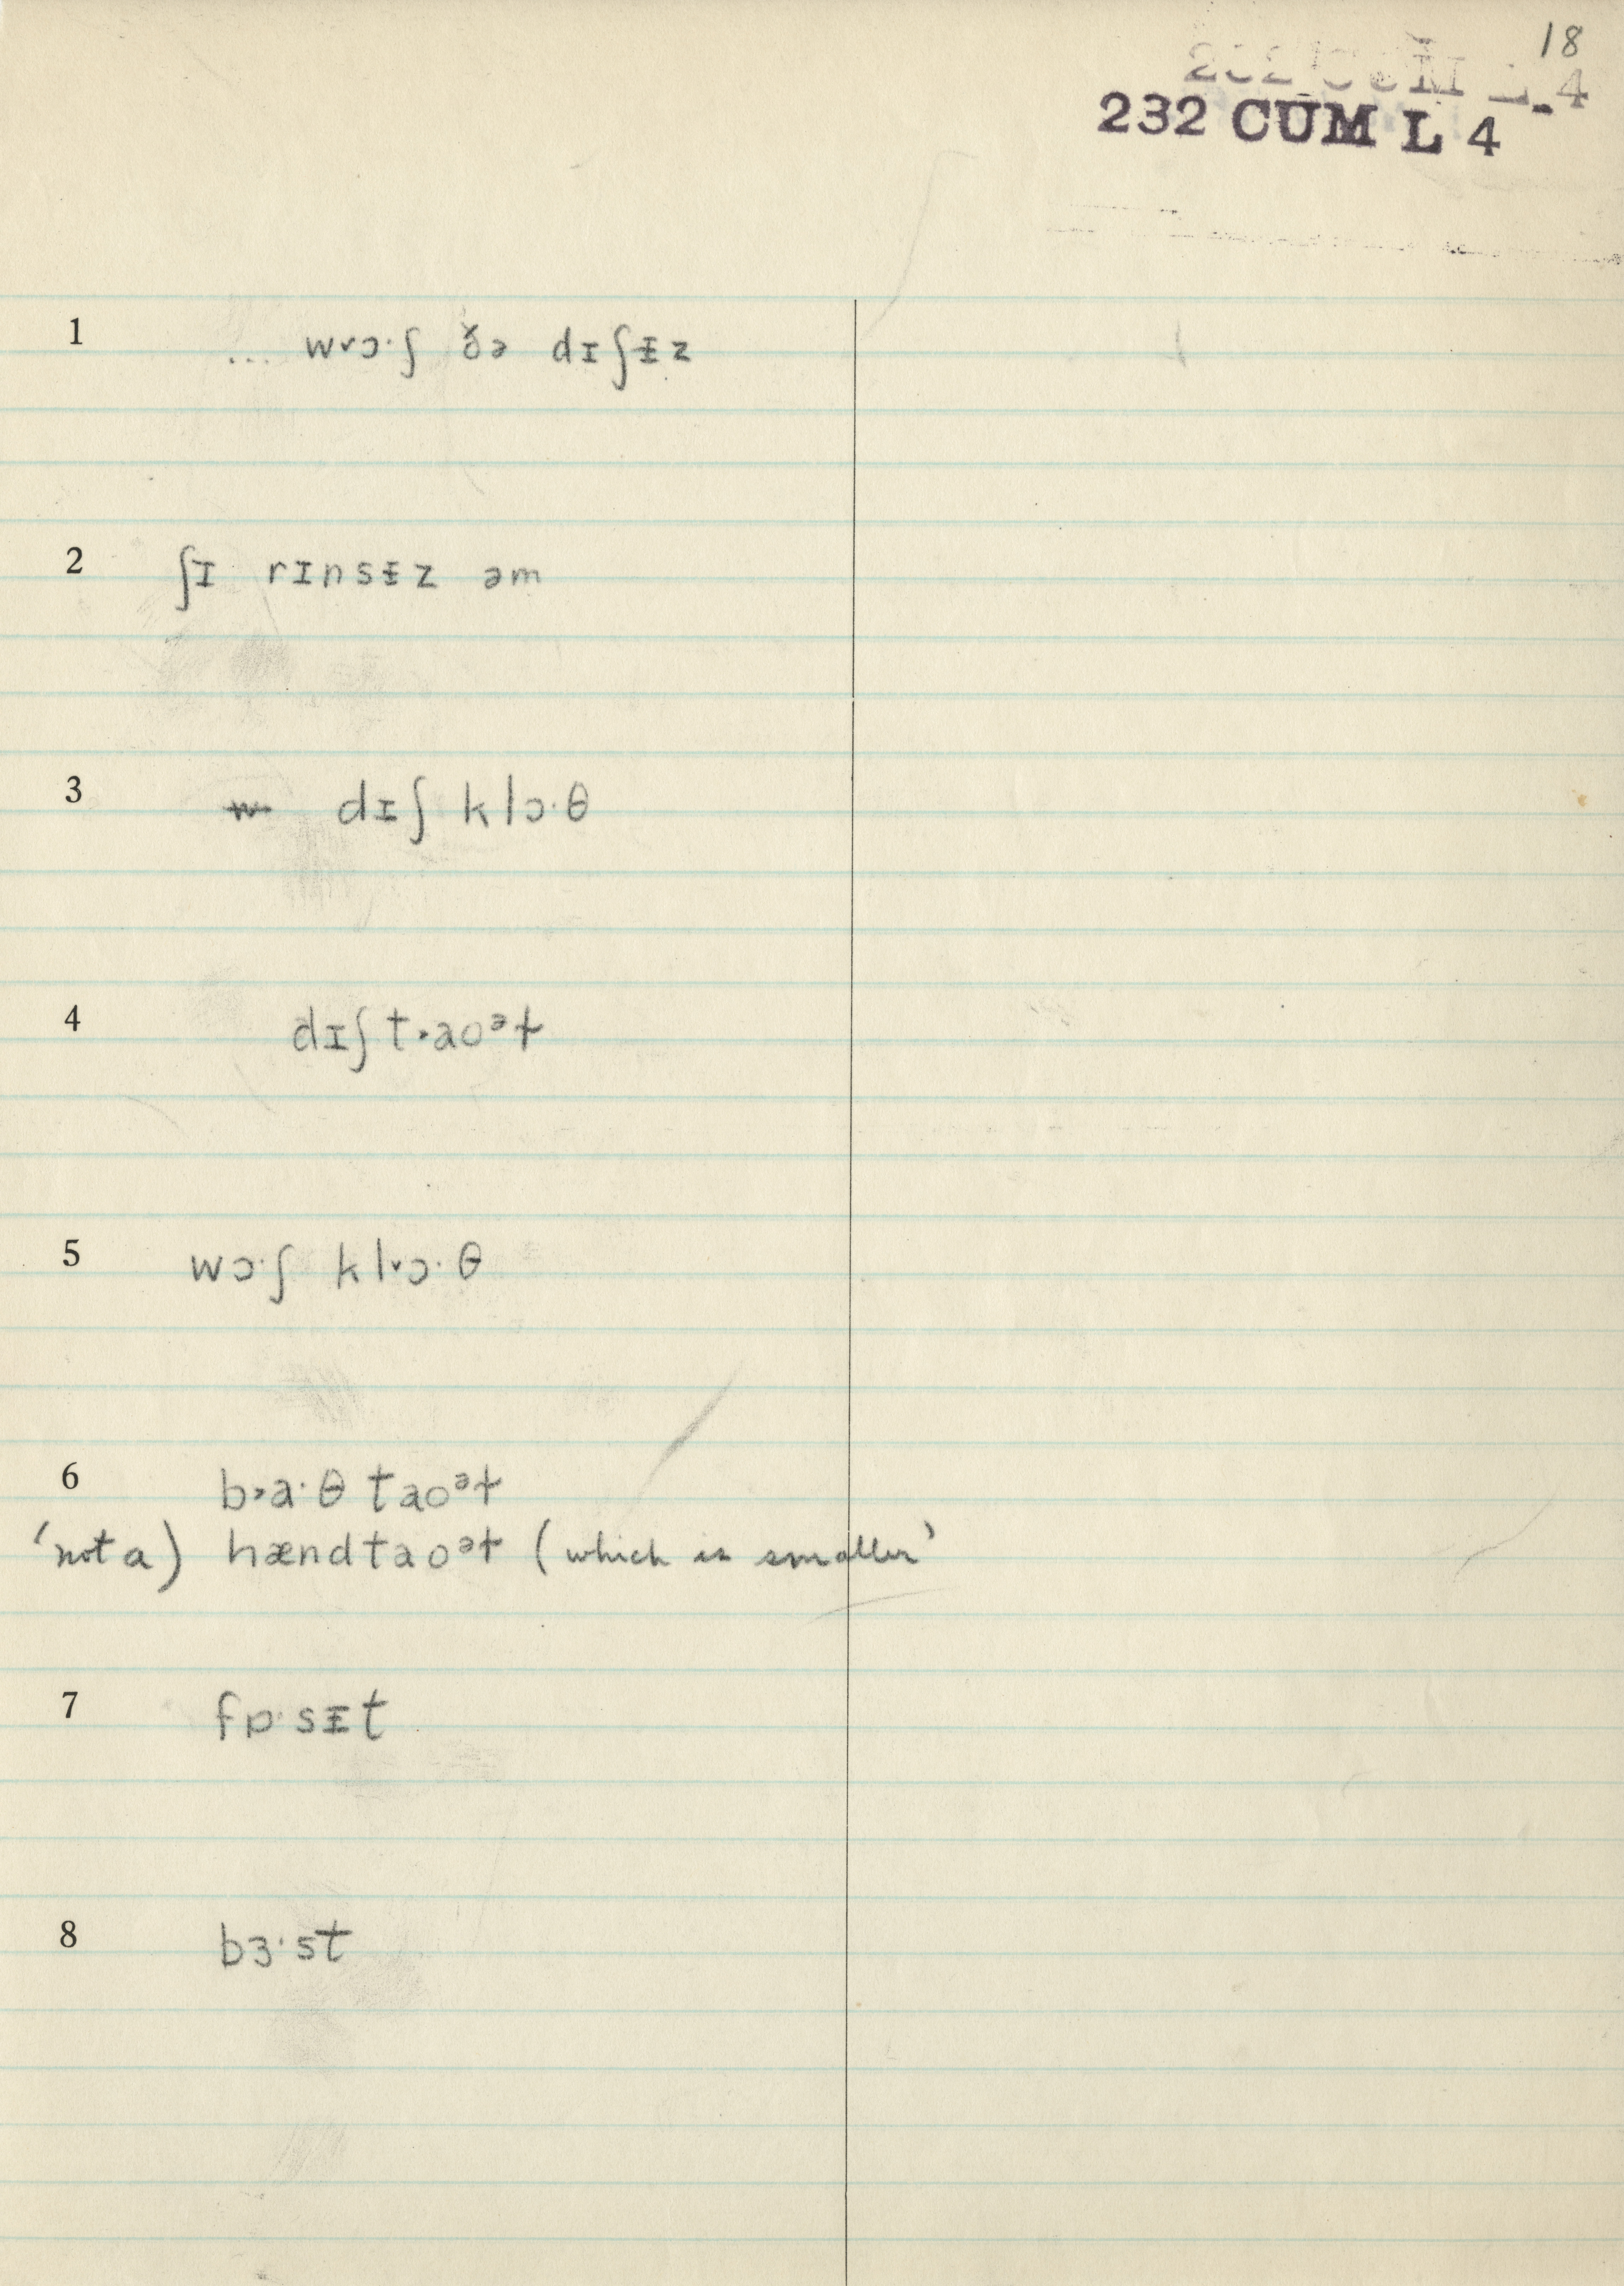 18
232 CUM L 4
232 CUM L 4
1 ... w˅ɔ·ʃ ðə dɪʃᵻz
2 ʃɪ rɪnsᵻz əm
3 w dɪʃ klɔ·θ
4 dɪʃ t˃aoᵊɫ
5 wɔ·ʃ kl˅ɔ·θ
6 b˃a·θ taoᵊɫ
'not a) hændtaoᵊɫ (which is smaller'
7 fɒ·sᵻt
8 bɜ·st